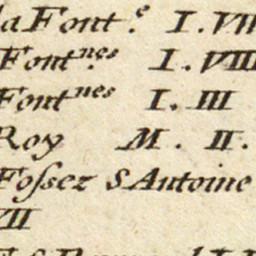 la Font.e I.VII
Font.nes I.VIII
Fontnes I. III
Roy M. II.
Fossez S Antoine
VII